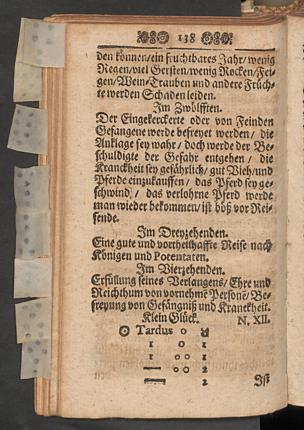 138
den können/ein fruchtbares Jahr/wenig
Regen/viel Gersten/wenig Rocken/Fei-
gen/Wein/Trauben und andere Früch-
te werden Schaden leiden.
Im Zwölfften.
Der Eingekerckerte oder von Feinden
Gefangene werde befreyet werden / die
Anklage sey wahr / doch werde der Be-
schuldigte der Gefahr entgehen / die
Kranckheit sey gefährlich/ gut Vieh/und
Pferde einzukauffen / das Pferd sey ge-
schwind / das verlohrne Pferd werde
man wieder bekommen/ist böß vor Rei-
sende.
Im Dreyzehenden.
Eine gute und vortheilhaffte Reise nach
Königen und Potentaten.
Im Vierzehenden.
Erfüllung seines Verlangens/Ehre und
Reichthum von vornehme Persone/Be-
freyung von Gefängniß und Kranckheit.
Klein Glück. N. XII.
Tardus
1 1
1 2
2
2
Ist